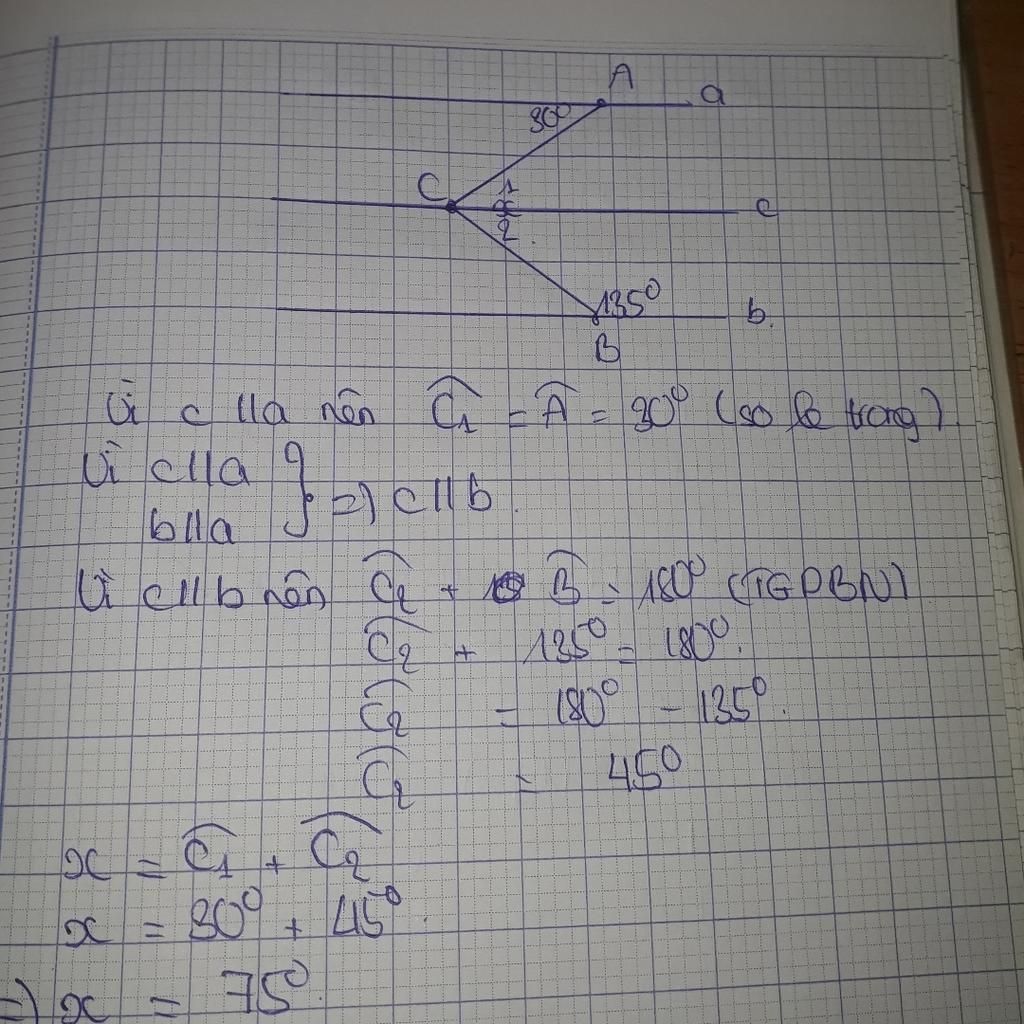 A
a
30⁰
C
1
x
2
c
135⁰
b.
B
Vì c //a nên C₁ = A = 30⁰ (so le trong).
Vì c//a
b//a
} =) c//b.
Vì c//b nên C₂ + B = 180⁰ (TGPBN)
C₂ + 135⁰ = 180⁰.
C₂ = 180⁰ - 135⁰.
C₂ = 45⁰
x = C₁ + C₂
x = 30⁰ + 45⁰.
=) x = 75⁰.